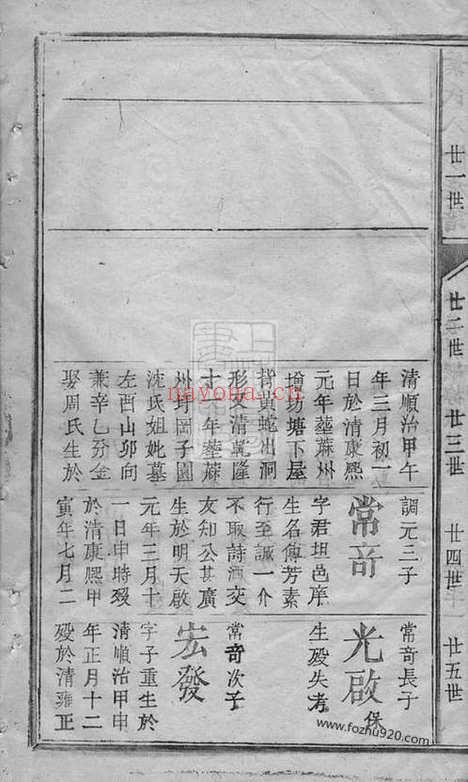 廿一世
廿二世
廿三世
廿四世
廿五世
清順治甲午
年三月初一
日於清康熙
元年塟蔴州
增坊塘下屋
背黄蛇出洞
形父清乾隆
十一年塟蔴
州坪岡子園
沈氏姐妣墓
左酉山卯向
兼辛乙分金
娶周氏生於
調元三子
常竒
字君坦邑庠
生名傳芳素
行至誠一介
不取詩酒交
友知公甚廣
生於明天啟
元年三月十
一日申時殁
於清康熙甲
寅年七月二
常竒長子
光啟 保
生殁失考
常竒次子
宏發
字子重生於
清順治甲申
年正月十二
殁於清雍正
www.fozhu920.com
nayona.cn